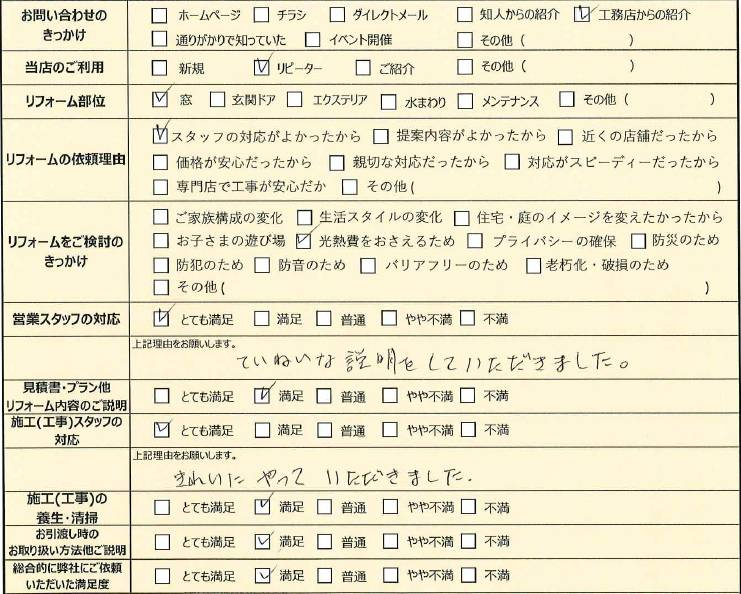 お問い合わせの きっかけ □ ホームページ □ チラシ □ ダイレクトメール □ 知人からの紹介 ☑ 工務店からの紹介
□ 通りがかりで知っていた □ イベント開催 □ その他 ( )
当店のご利用 □ 新規 ☑ リピーター □ ご紹介 □ その他 ( )
リフォーム部位 ☑ 窓 □ 玄関ドア □ エクステリア □ 水まわり □ メンテナンス □ その他 ( )
リフォームの依頼理由 ☑ スタッフの対応がよかったから □ 提案内容がよかったから □ 近くの店舗だったから
□ 価格が安心だったから □ 親切な対応だったから □ 対応がスピーディーだったから
□ 専門店で工事が安心だか □ その他 ( )
リフォームをご検討の きっかけ □ ご家族構成の変化 □ 生活スタイルの変化 □ 住宅・庭のイメージを変えたかったから
□ お子さまの遊び場 ☑ 光熱費をおさえるため □ プライバシーの確保 □ 防災のため
□ 防犯のため □ 防音のため □ バリアフリーのため □ 老朽化・破損のため
□ その他 ( )
営業スタッフの対応 ☑ とても満足 □ 満足 □ 普通 □ やや不満 □ 不満
上記理由をお願いします。
ていねいな説明をしていただきました。
見積書・プラン他 リフォーム内容のご説明 □ とても満足 ☑ 満足 □ 普通 □ やや不満 □ 不満
施工(工事)スタッフの 対応 ☑ とても満足 □ 満足 □ 普通 □ やや不満 □ 不満
上記理由をお願いします。
きれいにやっていただきました.
施工(工事)の 養生・清掃 □ とても満足 ☑ 満足 □ 普通 □ やや不満 □ 不満
お引渡し時の お取り扱い方法他ご説明 □ とても満足 ☑ 満足 □ 普通 □ やや不満 □ 不満
総合的に弊社にご依頼 いただいた満足度 □ とても満足 ☑ 満足 □ 普通 □ やや不満 □ 不満